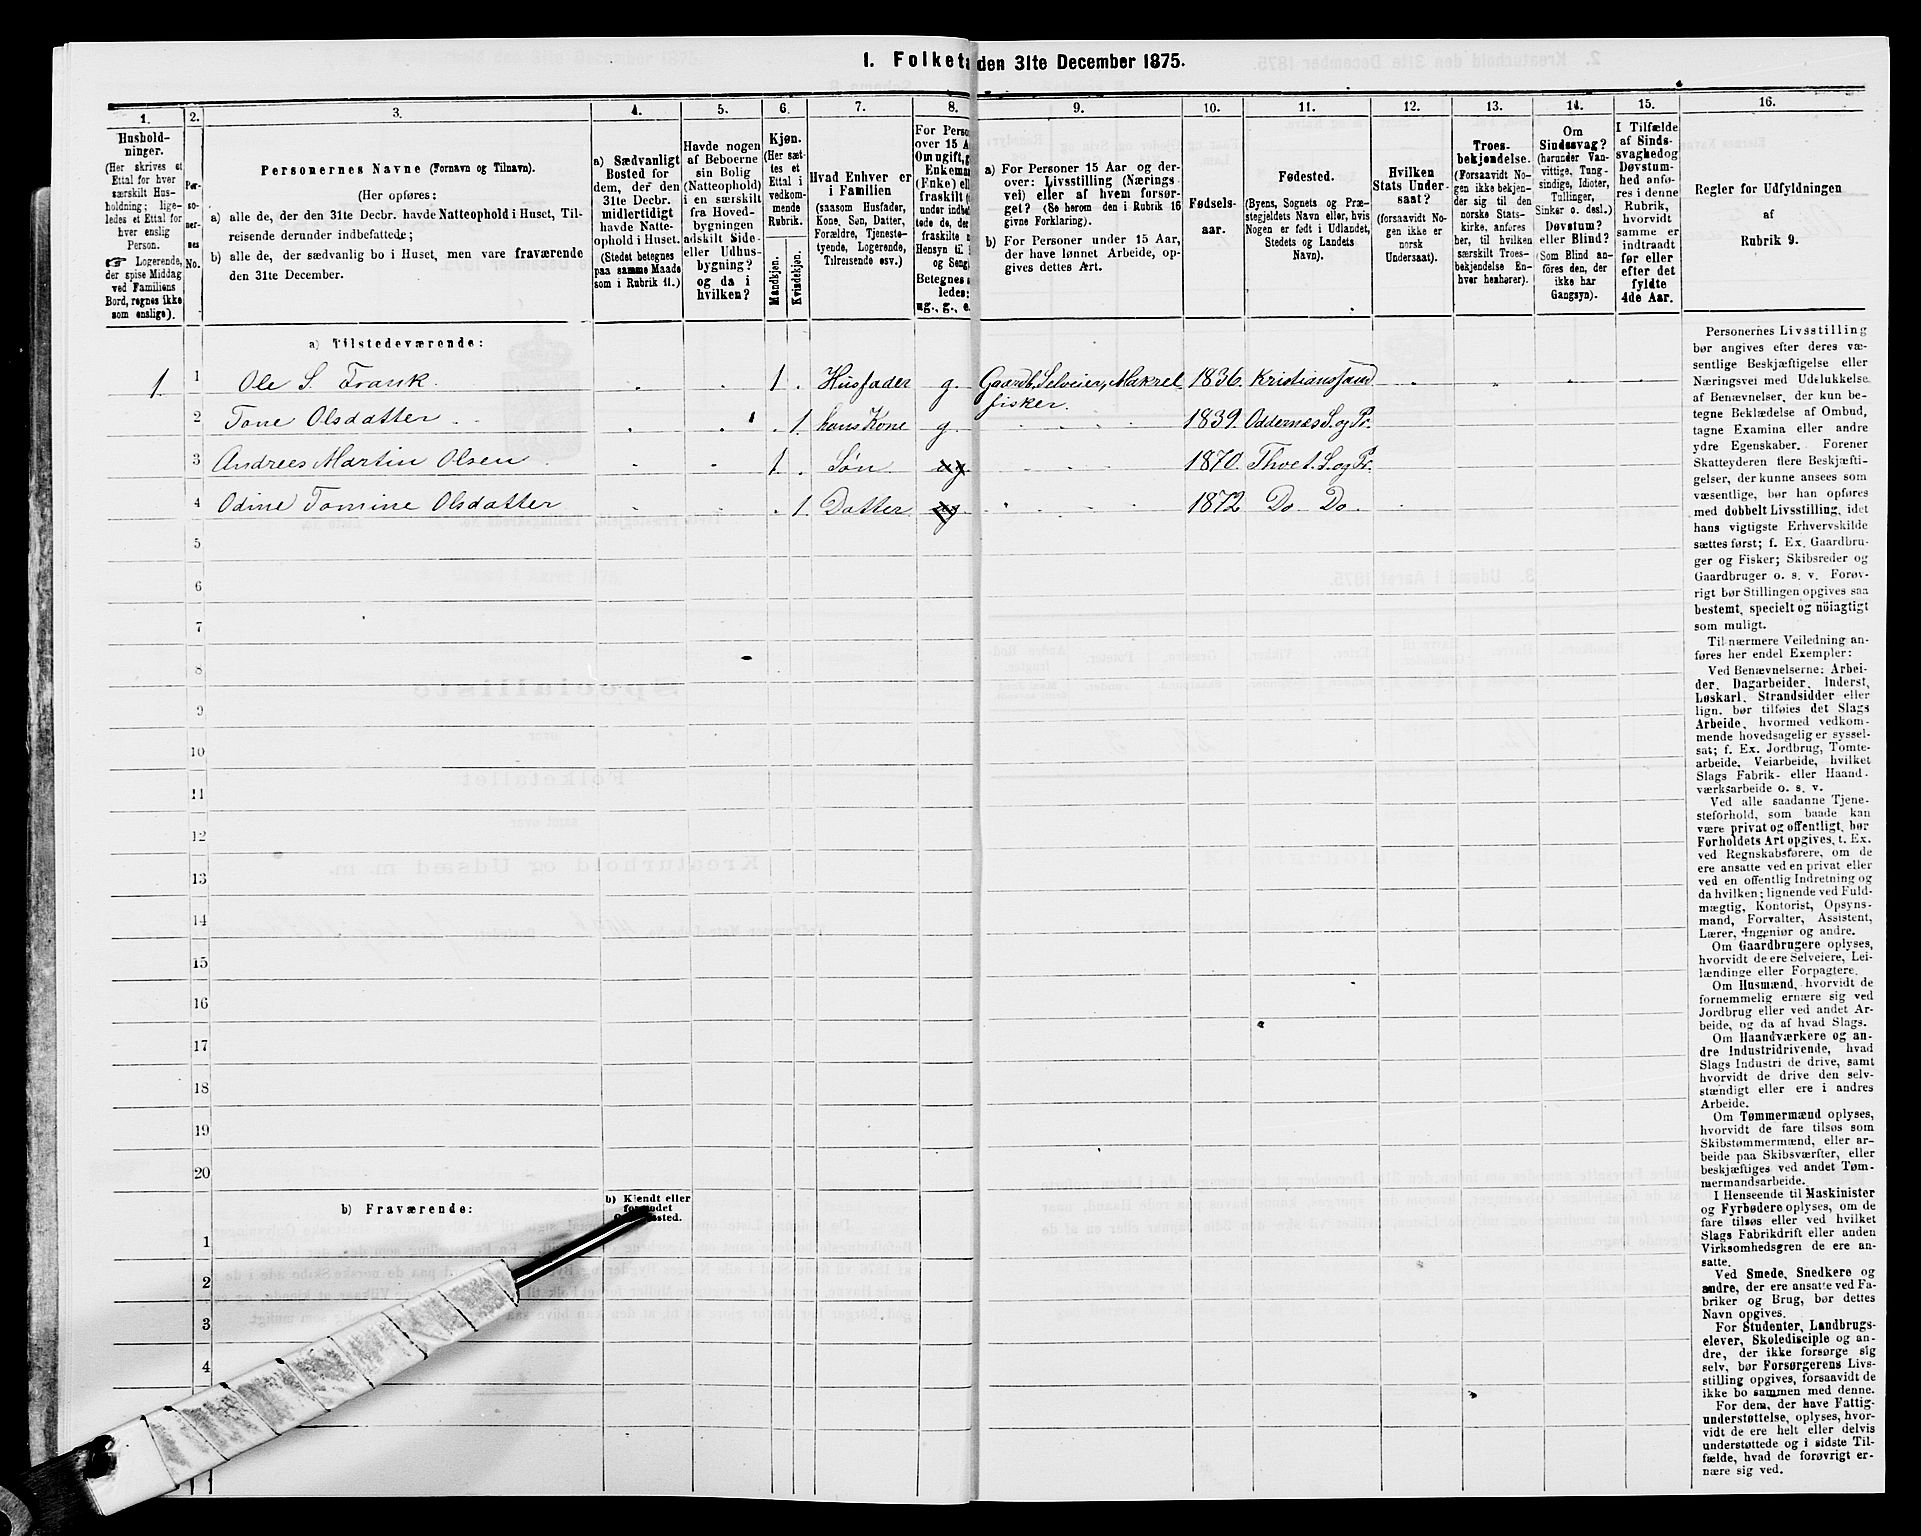 1. Folketa den 31te December 1875.
1. 2. 3. 4. 5. 6. 7. 8. 9. 10. 11. 12. 13. 14. 15. 16.
Hushold-
ninger.
(Her skrives et
Ettal for hver
særskilt Hus-
holdning; lige-
ledes et Ettal for
hver enslig
Person.
☞ Logerende,
der spise Middag
ved Familiens
Bord, regnes ikke
som enslige).
Per-
so-
ner-
nes
No.
Personernes Navne (Fornavn og Tilnavn).
(Her opføres:
a) alle de, der den 31te Decbr. havde Natteophold i Huset, Til-
reisende derunder indbefattede;
b) alle de, der sædvanlig bo i Huset, men vare fraværende
den 31te December.
a) Sædvanligt
Bosted for
dem, der den
31te Decbr.
midlertidigt
havde Natte-
ophold i Huset.
(Stedet betegnes
paa samme Maade
som i Rubrik 11.)
Havde nogen
af Beboerne
sin Bolig
(Natteophold)
i en særskilt
fra Hoved-
bygningen
adskilt Side-
eller Udhus-
bygning?
og da i
hvilken?
Kjøn.
(Her sæt-
tes et
Ettal i
vedkom-
mende
Rubrik.
Mandkjøn.
Kvindekjøn.
Hvad Enhver er
i Familien
(saasom Husfader,
Kone, Søn, Datter,
Forældre, Tjeneste-
tyende, Logerende,
Tilreisende osv.).
For Perso
over 15 A
Om ugift, g
Enkema
(Enke) ell
fraskilt (
under indbe
tede de, der
fraskilte
Hensyn til
og Seng
Betegnes s
ledes:
ug., g., e.
a) For Personer 15 Aar og der-
over: Livsstilling (Nærings
vei) eller af hvem forsør-
get? (Se herom den i Rubrik 16
givne Forklaring).
b) For Personer under 15 Aar,
der have lønnet Arbeide, op-
gives dettes Art.
Fødsels-
aar.
Fødested.
(Byens, Sognets og Præ-
stegjeldets Navn eller, hvis
Nogen er født i Udlandet,
Stedets og Landets
Navn).
Hvilken
Stats Under-
saat?
(forsaavidt No-
gen ikke er
norsk
Undersaat).
Troes-
bekjendelse.
(Forsaavidt No-
gen ikke bekjen-
der sig til den
norske Stats-
kirke, anføres
her, til hvilken
særskilt Troes-
bekjendelse En-
hver henhører).
Om
Sindssvag?
(herunder Van-
vittige, Tung-
sindige, Idioter,
Tullinger,
Sinker o. desl.)
Døvstum?
eller Blind?
(Som Blind an-
føres den, der
ikke har
Gangsyn).
I Tilfælde
af Sinds-
svaghed og
Døvstum-
hed anfø-
res i denne
Rubrik,
hvorvidt
samme er
indtraadt
før eller
efter det
fyldte
4de Aar.
Regler for Udfyldningen
af
Rubrik 9.
a) Tilstedeværende:
1 1 Ole S. Frank. 1 . Husfader g. Gaardb, Selveier, Makrel 1836. Kristianssand
fisker.
2 Tone Olsdatter . 1. hans Kone g. 1839. Oddernæs S. og Pr.
3 Andrees Martin Olsen 1. Søn 1870. Thvet. S. og Pr.
4 Odine Tomine Olsdatter . 1. Datter. 1872 Do Do
5
6
7
8
9
10
11
12
13
14
15
16
17
18
19
20
b) Fraværende:
b) Kjendt eller
1
2
3
4
Personernes Livsstilling
bør angives efter deres væ-
sentlige Beskjæftigelse eller
Næringsvei med Udelukkelse
af Benævnelser, der kun be-
tegne Beklædelse af Ombud,
tagne Examina eller andre
ydre Egenskaber. Forener
Skatteyderen flere Beskjæfti-
gelser, der kunne ansees som
væsentlige, bør han opføres
med dobbelt Livsstilling, idet
hans vigtigste Erhvervskilde
sættes først; f. Ex. Gaardbru-
ger og Fisker; Skibsreder og
Gaardbruger o. s. v. Forøv-
rigt bør Stillingen opgives saa
bestemt, specielt og nöiagtigt
som muligt.
Til nærmere Veiledning an-
føres her endel Exempler:
Ved Benævnelserne: Arbei-
der, Dagarbeider, Inderst,
Løskarl, Strandsidder eller
lign. bør tilføies det Slags
Arbeide, hvormed vedkom-
mende hovedsagelig er syssel-
sat; f. Ex. Jordbrug, Tomte-
arbeide, Veiarbeide, hvilket
Slags Fabrik- eller Haand-
værksarbeide o. s. v.
Ved alle saadanne Tjene-
steforhold, som baade kan
være privat og offentligt, bør
Forholdets Art opgives, t. Ex.
ved Regnskabsførere, om de
ere ansatte ved en privat eller
ved en offentlig Indretning og
da hvilken; lignende ved Fuld-
mægtig, Kontorist, Opsyns-
mand, Forvalter, Assistent,
Lærer, Ingeniør og andre.
Om Gaardbrugere oplyses,
hvorvidt de ere Selveiere, Lei-
lændinge eller Forpagtere.
Om Husmænd, hvorvidt de
fornemmelig ernære sig ved
Jordbrug eller ved andet Ar-
beide, og da af hvad Slags.
Om Haandværkere og an-
dre Industridrivende, hvad
Slags Industri de drive, samt
hvorvidt de drive den selv-
stændigt eller ere i andres
Arbeide.
Om Tømmermænd oplyses,
hvorvidt de fare tilsøs som
Skibstømmermænd, eller ar-
beide paa Skibsværfter, eller
beskjæftiges ved andet Tøm-
mermandsarbeide.
I Henseende til Maskinister
og Fyrbødere oplyses, om de
fare tilsøs eller ved hvilket
Slags Fabrikdrift eller anden
Virksomhedsgren de ere an-
satte.
Ved Smede, Snedkere og
andre, der ere ansatte ved Fa-
briker og Brug, bør dettes
Navn opgives.
For Studenter, Landbrugs-
elever, Skoledisciple og an-
dre, der ikke forsørge sig
selv, bør Forsørgerens Livs-
stilling opgives, forsaavidt de
ikke bo sammen med denne.
For dem, der have Fattig-
understøttelse, oplyses, hvor-
vidt de ere helt eller delvis
understøttede og i sidste Til-
fælde, hvad de forøvrigt er-
nære sig ved.